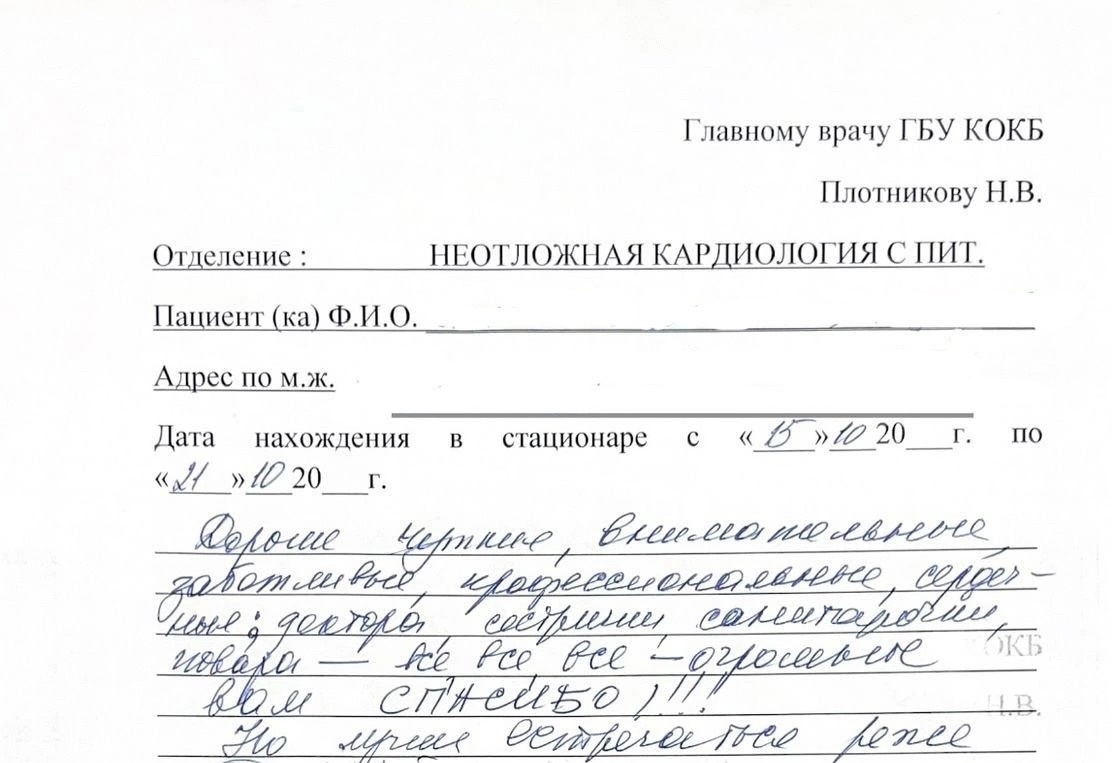 Главному врачу ГБУ КОКБ
Плотникову Н.В.
Отделение : НЕОТЛОЖНАЯ КАРДИОЛОГИЯ С ПИТ.
Пациент (ка) Ф.И.О.
Адрес по м.ж.
Дата нахождения в стационаре с «15»10 20___г. по
«21»10 20___г.
внимательные,
заботливые, профессиональные, сердеч-
ные: доктора, сестрички, санитарочки,
повара — все все все — огромные
вам СПАСИБО!!!
Но лучше встречаться реже
ОКБ
Н.В.